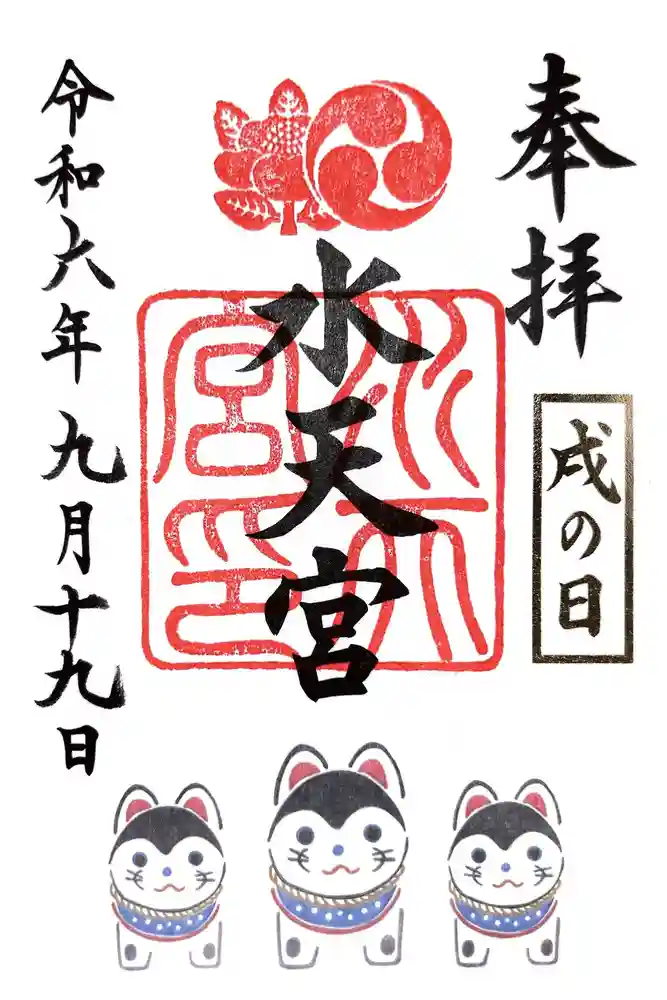 奉拝
戌の日
水天宮
水天宮印
令和六年九月十九日